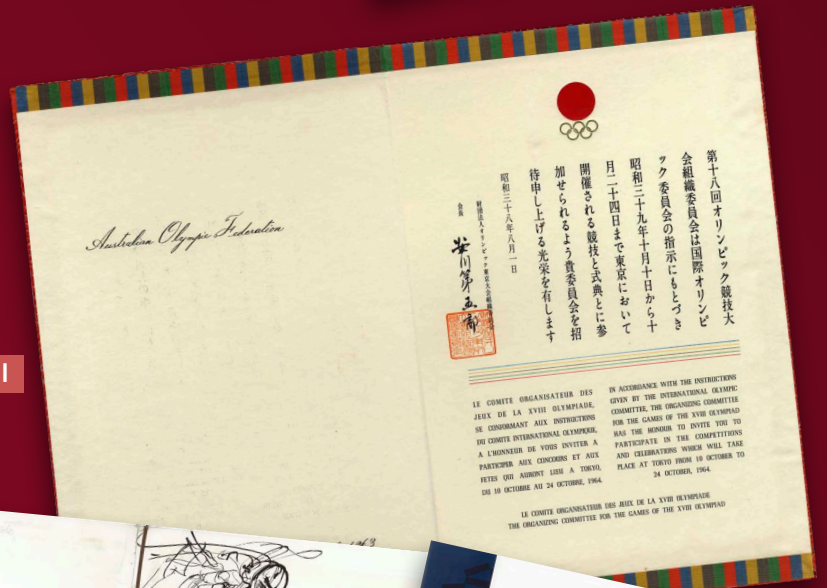 Australian Olympic Federation
第十八回オリンピック競技大
会組織委員会は国際オリンピ
ック委員会の指示にもとづき
昭和三十九年十月十日から十
月二十四日まで東京において
開催される競技と式典とに参
加せられるよう貴委員会を招
待申し上げる光栄を有します
昭和三十八年八月一日
財団法人オリンピック東京大会組織委員会
会長
安川第五郎
LE COMITE ORGANISATEUR DES
JEUX DE LA XVIII OLYMPIADE,
SE CONFORMANT AUX INSTRUCTIONS
DU COMITE INTERNATIONAL OLYMPIQUE,
A L'HONNEUR DE VOUS INVITER A
PARTICIPER AUX CONCOURS ET AUX
FETES QUI AURONT LIEU A TOKYO,
DU 10 OCTOBRE AU 24 OCTOBRE, 1964.
IN ACCORDANCE WITH THE INSTRUCTIONS
GIVEN BY THE INTERNATIONAL OLYMPIC
COMMITTEE, THE ORGANIZING COMMITTEE
FOR THE GAMES OF THE XVIII OLYMPIAD
HAS THE HONOUR TO INVITE YOU TO
PARTICIPATE IN THE COMPETITIONS
AND CELEBRATIONS WHICH WILL TAKE
PLACE AT TOKYO FROM 10 OCTOBER TO
24 OCTOBER, 1964.
LE COMITE ORGANISATEUR DES JEUX DE LA XVIII OLYMPIADE
THE ORGANIZING COMMITTEE FOR THE GAMES OF THE XVIII OLYMPIAD